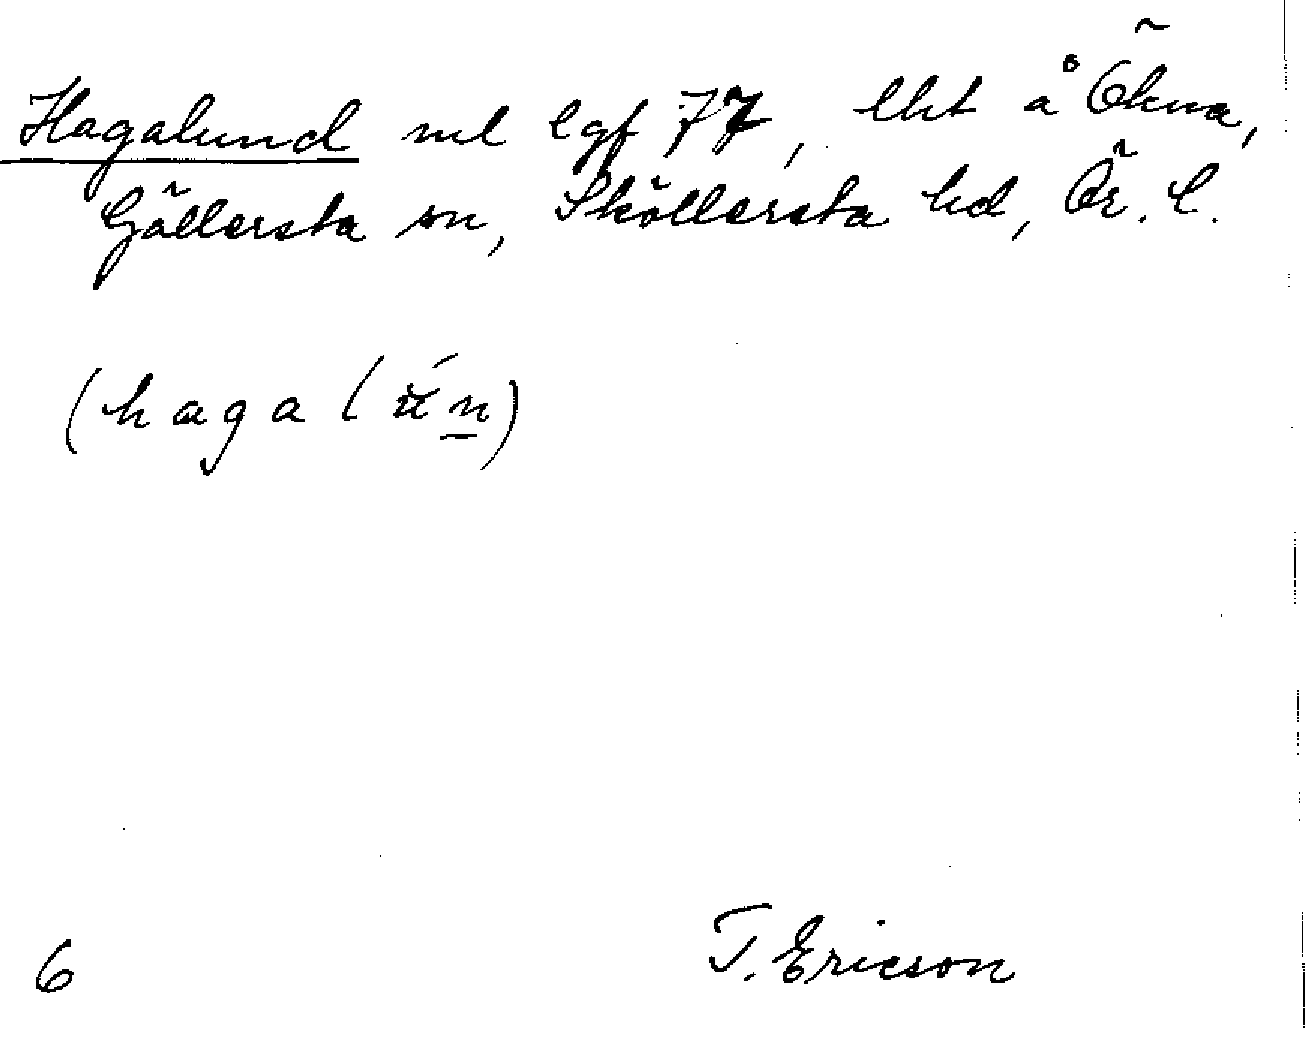 Hagalund nl lgf 77, lht å Ökna,
Gällersta sn, Sköllersta hd, Ör. l.
(haga lún)
6
T. Ericson